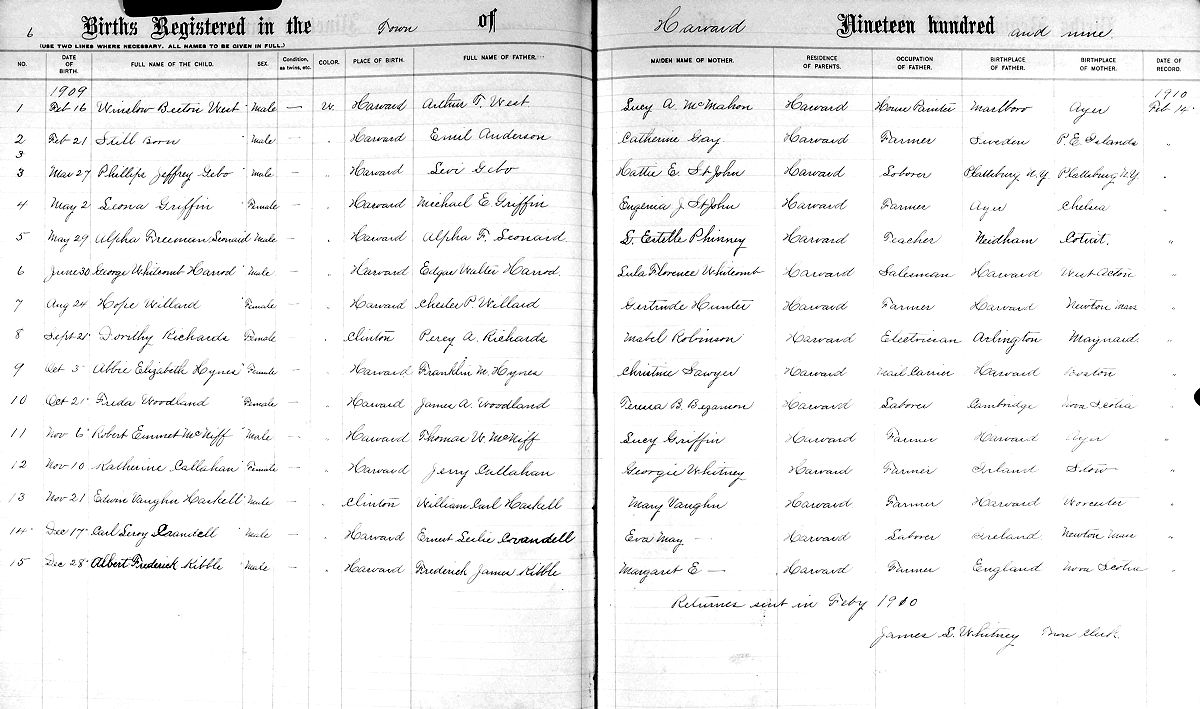 6 Births Registered in the Town of Harvard Nineteen hundred and nine
(USE TWO LINES WHERE NECESSARY. ALL NAMES TO BE GIVEN IN FULL.)
NO. DATE OF BIRTH. FULL NAME OF THE CHILD. SEX. Condition, as twins, etc. COLOR. PLACE OF BIRTH. FULL NAME OF FATHER. MAIDEN NAME OF MOTHER. RESIDENCE OF PARENTS. OCCUPATION OF FATHER. BIRTHPLACE OF FATHER. BIRTHPLACE OF MOTHER. DATE OF RECORD.
1909 1910
1 Feb 16 Winslow Beeton West Male — W. Harvard Arthur T. West Lucy A. McMahon Harvard House Painter Marlboro Ayer Feb 14
2 Feb 21 Still Born Male " Harvard Emil Anderson Catherine Gay Harvard Farmer Sweden P. E. Islands "
3
3 Mar 27 Phillip Jeffrey Gebo Male — " Harvard Levi Gebo Hattie E. St John Harvard Laborer Plattsburg N.Y. Plattsburg N.Y. "
4 May 2 Leona Griffin Female — " Harvard Michael E. Griffin Eugenia J. St John Harvard Farmer Ayer Chelsea "
5 May 29 Alpha Freeman Leonard Male — " Harvard Alpha F. Leonard L. Estelle Phinney Harvard Teacher Needham Cotuit. "
6 June 30 George Whitcomb Harrod Male — " Harvard Edgar Walter Harrod. Lula Florence Whitcomb Harvard Salesman Harvard West Acton "
7 Aug 24 Hope Willard Female — " Harvard Chester P. Willard Gertrude Hunter Harvard Farmer Harvard Newton Mass "
8 Sept 25 Dorothy Richards Female — " Clinton Percy A. Richards Mabel Robinson Harvard Electrician Arlington Maynard. "
9 Oct 5 Abbie Elizabeth Hynes Female — " Harvard Franklin M. Hynes Christine Sawyer Harvard Mail Carrier Harvard Boston "
10 Oct 25 Freda Woodland Female — " Harvard James A. Woodland Teresa B. Harvard Laborer Cambridge Nova Scotia "
11 Nov 6 Robert Emmet McNiff Male — " Harvard Thomas W. McNiff Lucy Griffin Harvard Farmer Harvard Ayer "
12 Nov 10 Katherine Callahan Female — " Harvard Jerry Callahan Georgie Whitney Harvard Farmer Irland Stow "
13 Nov 21 Edwin Vaughn Haskell Male — " Clinton William Carl Haskell Mary Vaughn Harvard Farmer Harvard Worcester "
14 Dec 17 Carl Leroy Crandell Male — " Harvard Ernest Leslie Crandell Eva May — Harvard Laborer Ireland Newton Mass "
15 Dec 28 Albert Frederick Kibble Male — " Harvard Frederick James Kibble Margaret E — Harvard Farmer England Nova Scotia "
Returnes sent in Feby 1910
James L. Whitney Town Clerk.